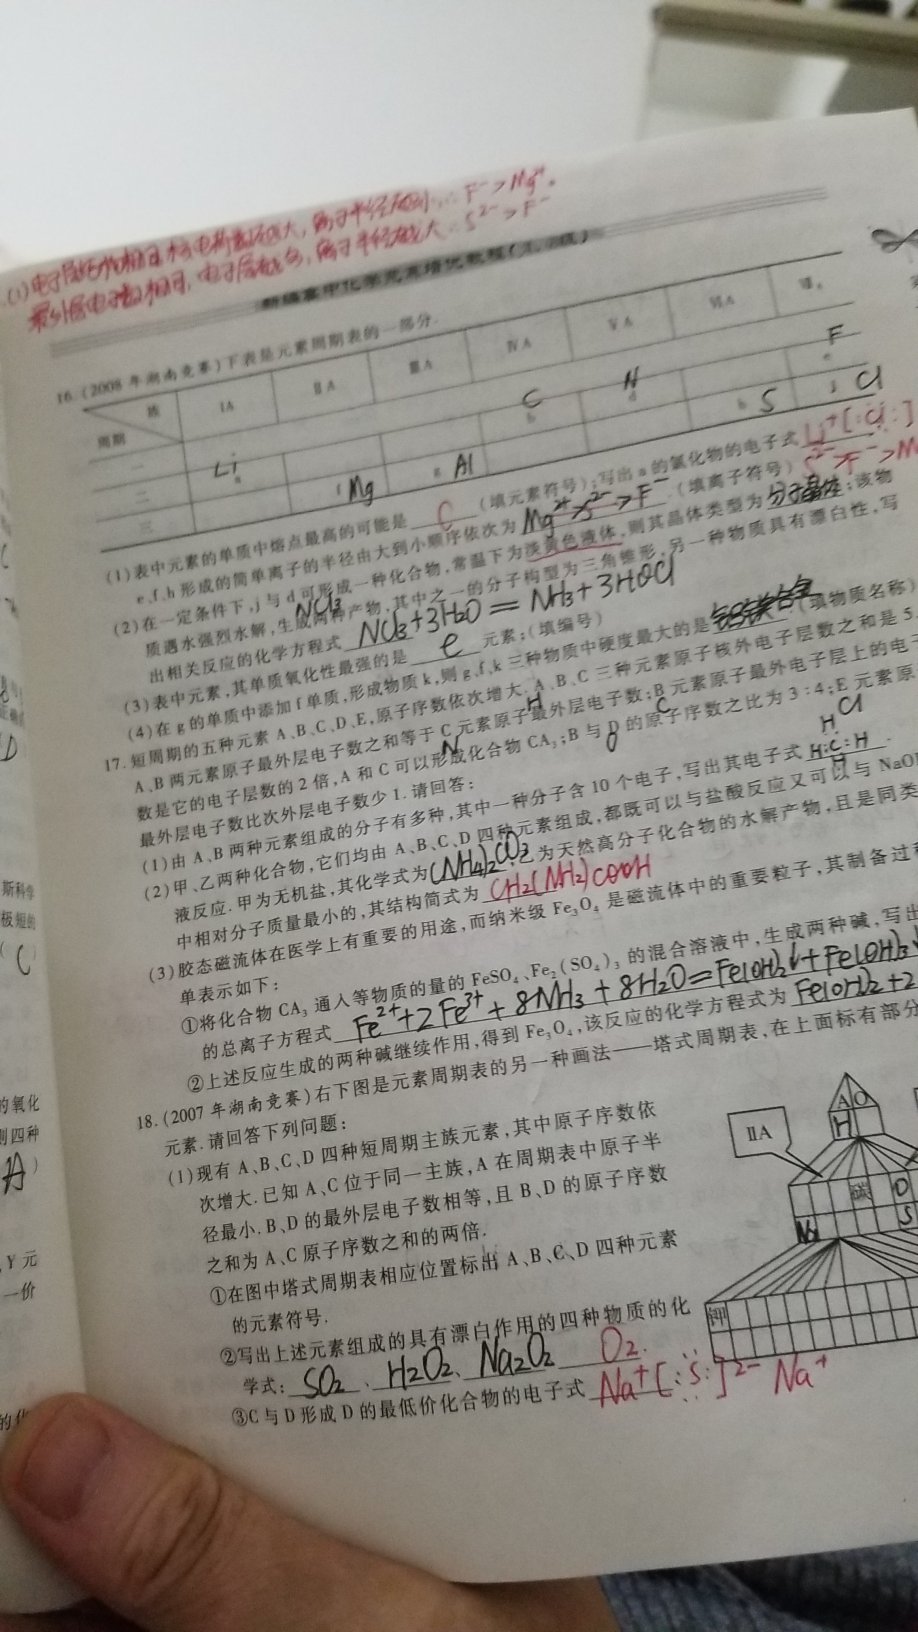 (1)电子层结构相同,核电荷数越大,离子半径越小,∴F⁻>Mg²⁺.
最外层电子数相同,电子层越多,离子半径越大∴S²⁻>F⁻
新编高中化学竞赛培优教程
16.(2008年湖南竞赛)下表是元素周期表的一部分.
族 ⅠA ⅡA ⅢA ⅣA ⅤA ⅥA
周期
二 Li a C b N d F e
三 f Mg g Al h S j Cl
(1)表中元素的单质中熔点最高的可能是 C (填元素符号);写出a的氯化物的电子式 Li⁺[:Cl:]
e、f、h形成的简单离子的半径由大到小顺序依次为 Mg²⁺>S²⁻>F⁻ (填离子符号) S²⁻>F⁻>M
(2)在一定条件下,j与d可形成一种化合物,常温下为淡黄色液体,则其晶体类型为 分子晶体;该物
质遇水强烈水解,生成两种产物,其中之一的分子构型为三角锥形,另一种物质具有漂白性,写
NCl₃
出相关反应的化学方程式 NCl₃+3H₂O=NH₃+3HOCl
(3)表中元素,其单质氧化性最强的是 e 元素;(填编号)
(4)在g的单质中添加f单质,形成物质k,则g、f、k三种物质中硬度最大的是 (填物质名称)
17.短周期的五种元素A、B、C、D、E,原子序数依次增大.A、B、C三种元素原子核外电子层数之和是5.
H C
A、B两元素原子最外层电子数之和等于C元素原子最外层电子数;B元素原子最外电子层上的电子
N O Cl
数是它的电子层数的2倍,A和C可以形成化合物CA₃;B与D的原子序数之比为3:4;E元素原
最外层电子数比次外层电子数少1.请回答:
(1)由A、B两种元素组成的分子有多种,其中一种分子含10个电子,写出其电子式 H:C:H H H .
(2)甲、乙两种化合物,它们均由A、B、C、D四种元素组成,都既可以与盐酸反应又可以与NaOH
液反应.甲为无机盐,其化学式为 (NH₄)₂CO₃ ;乙为天然高分子化合物的水解产物,且是同类
中相对分子质量最小的,其结构简式为 CH₂(NH₂)COOH
(3)胶态磁流体在医学上有重要的用途,而纳米级Fe₃O₄是磁流体中的重要粒子,其制备过程
单表示如下:
①将化合物CA₃通入等物质的量的FeSO₄、Fe₂(SO₄)₃的混合溶液中,生成两种碱,写出
的总离子方程式 Fe²⁺+2Fe³⁺+8NH₃+8H₂O=Fe(OH)₂↓+Fe(OH)₃↓
②上述反应生成的两种碱继续作用,得到Fe₃O₄,该反应的化学方程式为 Fe(OH)₂+2
18.(2007年湖南竞赛)右下图是元素周期表的另一种画法——塔式周期表,在上面标有部分
元素.请回答下列问题:
(1)现有A、B、C、D四种短周期主族元素,其中原子序数依
次增大.已知A、C位于同一主族,A在周期表中原子半
径最小.B、D的最外层电子数相等,且B、D的原子序数
之和为A、C原子序数之和的两倍.
①在图中塔式周期表相应位置标出A、B、C、D四种元素
的元素符号.
②写出上述元素组成的具有漂白作用的四种物质的化
学式: SO₂ 、 H₂O₂ 、 Na₂O₂ O₂.
③C与D形成D的最低价化合物的电子式 Na⁺[:S:]²⁻Na⁺
ⅡA
A O
H
碳 O
Na S
钾
斯科学
极短的
( C
D
的氧化
则四种
A )
、Y元
一价
的化